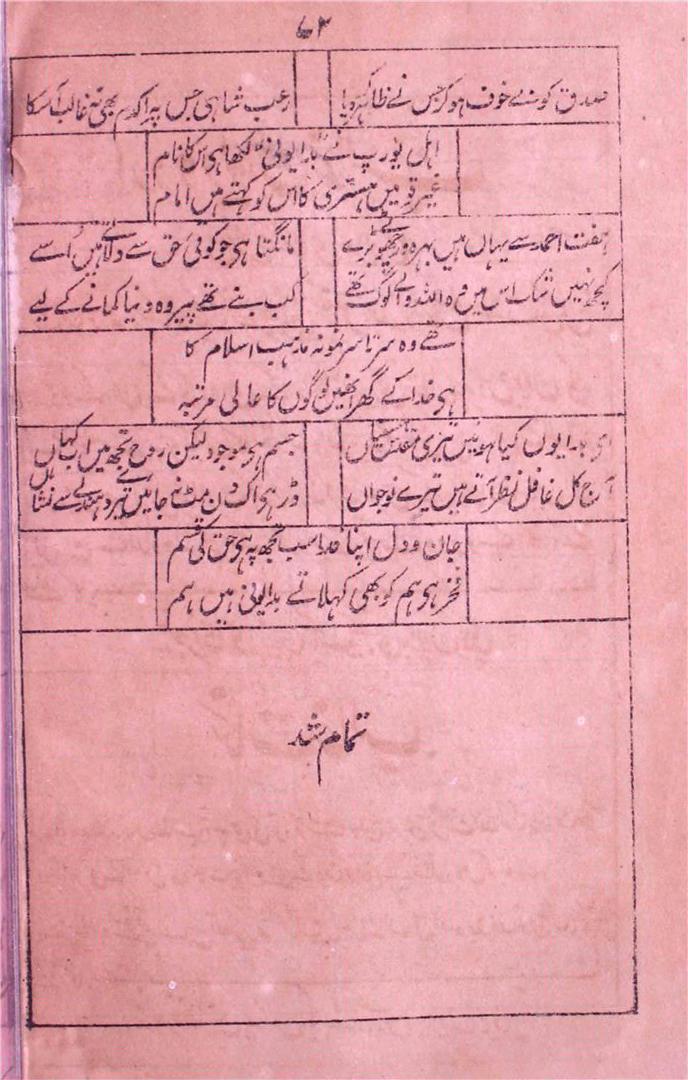 ۷۳
صدق کو بے خوف ہو کر جس نے ظاہر کر دیا رعب شاہی جس پہ اکدم بھی نہ غالب آ سکا
اہل یورپ نے "بدایونی" لکھا ہی اس کا نام
غیر قومیں ہسٹری کا اس کو کہتے ہیں امام
ہفت احمد سے یہاں ہیں بہرہ ور چھوٹے بڑے مانگتا ہی جو کوئی حق سے دلاتے ہیں اُسے
کچھ نہیں شک اس میں وہ اللہ والے لوگ تھے کب بنے تھے پیر وہ دنیا کمانے کے لیے
تھے وہ سرتاسر نمونہ مذہب اسلام کا
ہی خدا کے گھر انھیں لوگوں کا عالی مرتبہ
ای بدایوں کیا ہوئیں تیری جسم ہی موجود لیکن روح تجھ میں اب کہاں
آج کل غافل نظر آتے ہیں تیرے نوجواں ڈر ہی اک دن مٹ نہ جائیں تیرے دھندلے سے نشاں
جان و دل اپنا فدا سب تجھ پہ ہی حق کی قسم
فخر ہی ہم کو بھی کہلاتے بدایونی ہیں ہم
تمام شد